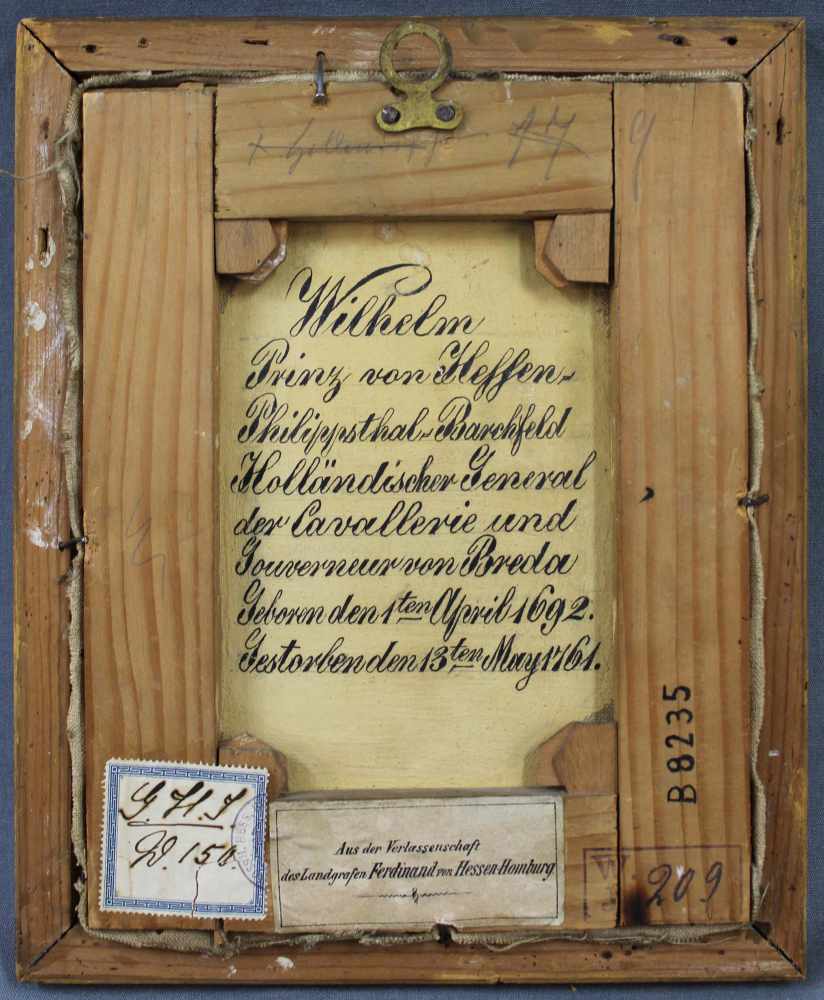 17
9
Wilhelm
Prinz von Hessen-
Philippsthal-Barchfeld
Holländischer General
der Cavallerie und
Gouverneur von Breda
Geboren den 1ten April 1692.
Gestorben den 13ten May 1761.
B8235
G. H. I
D. 150.
Aus der Verlassenschaft
des Landgrafen Ferdinand von Hessen-Homburg
W.
209